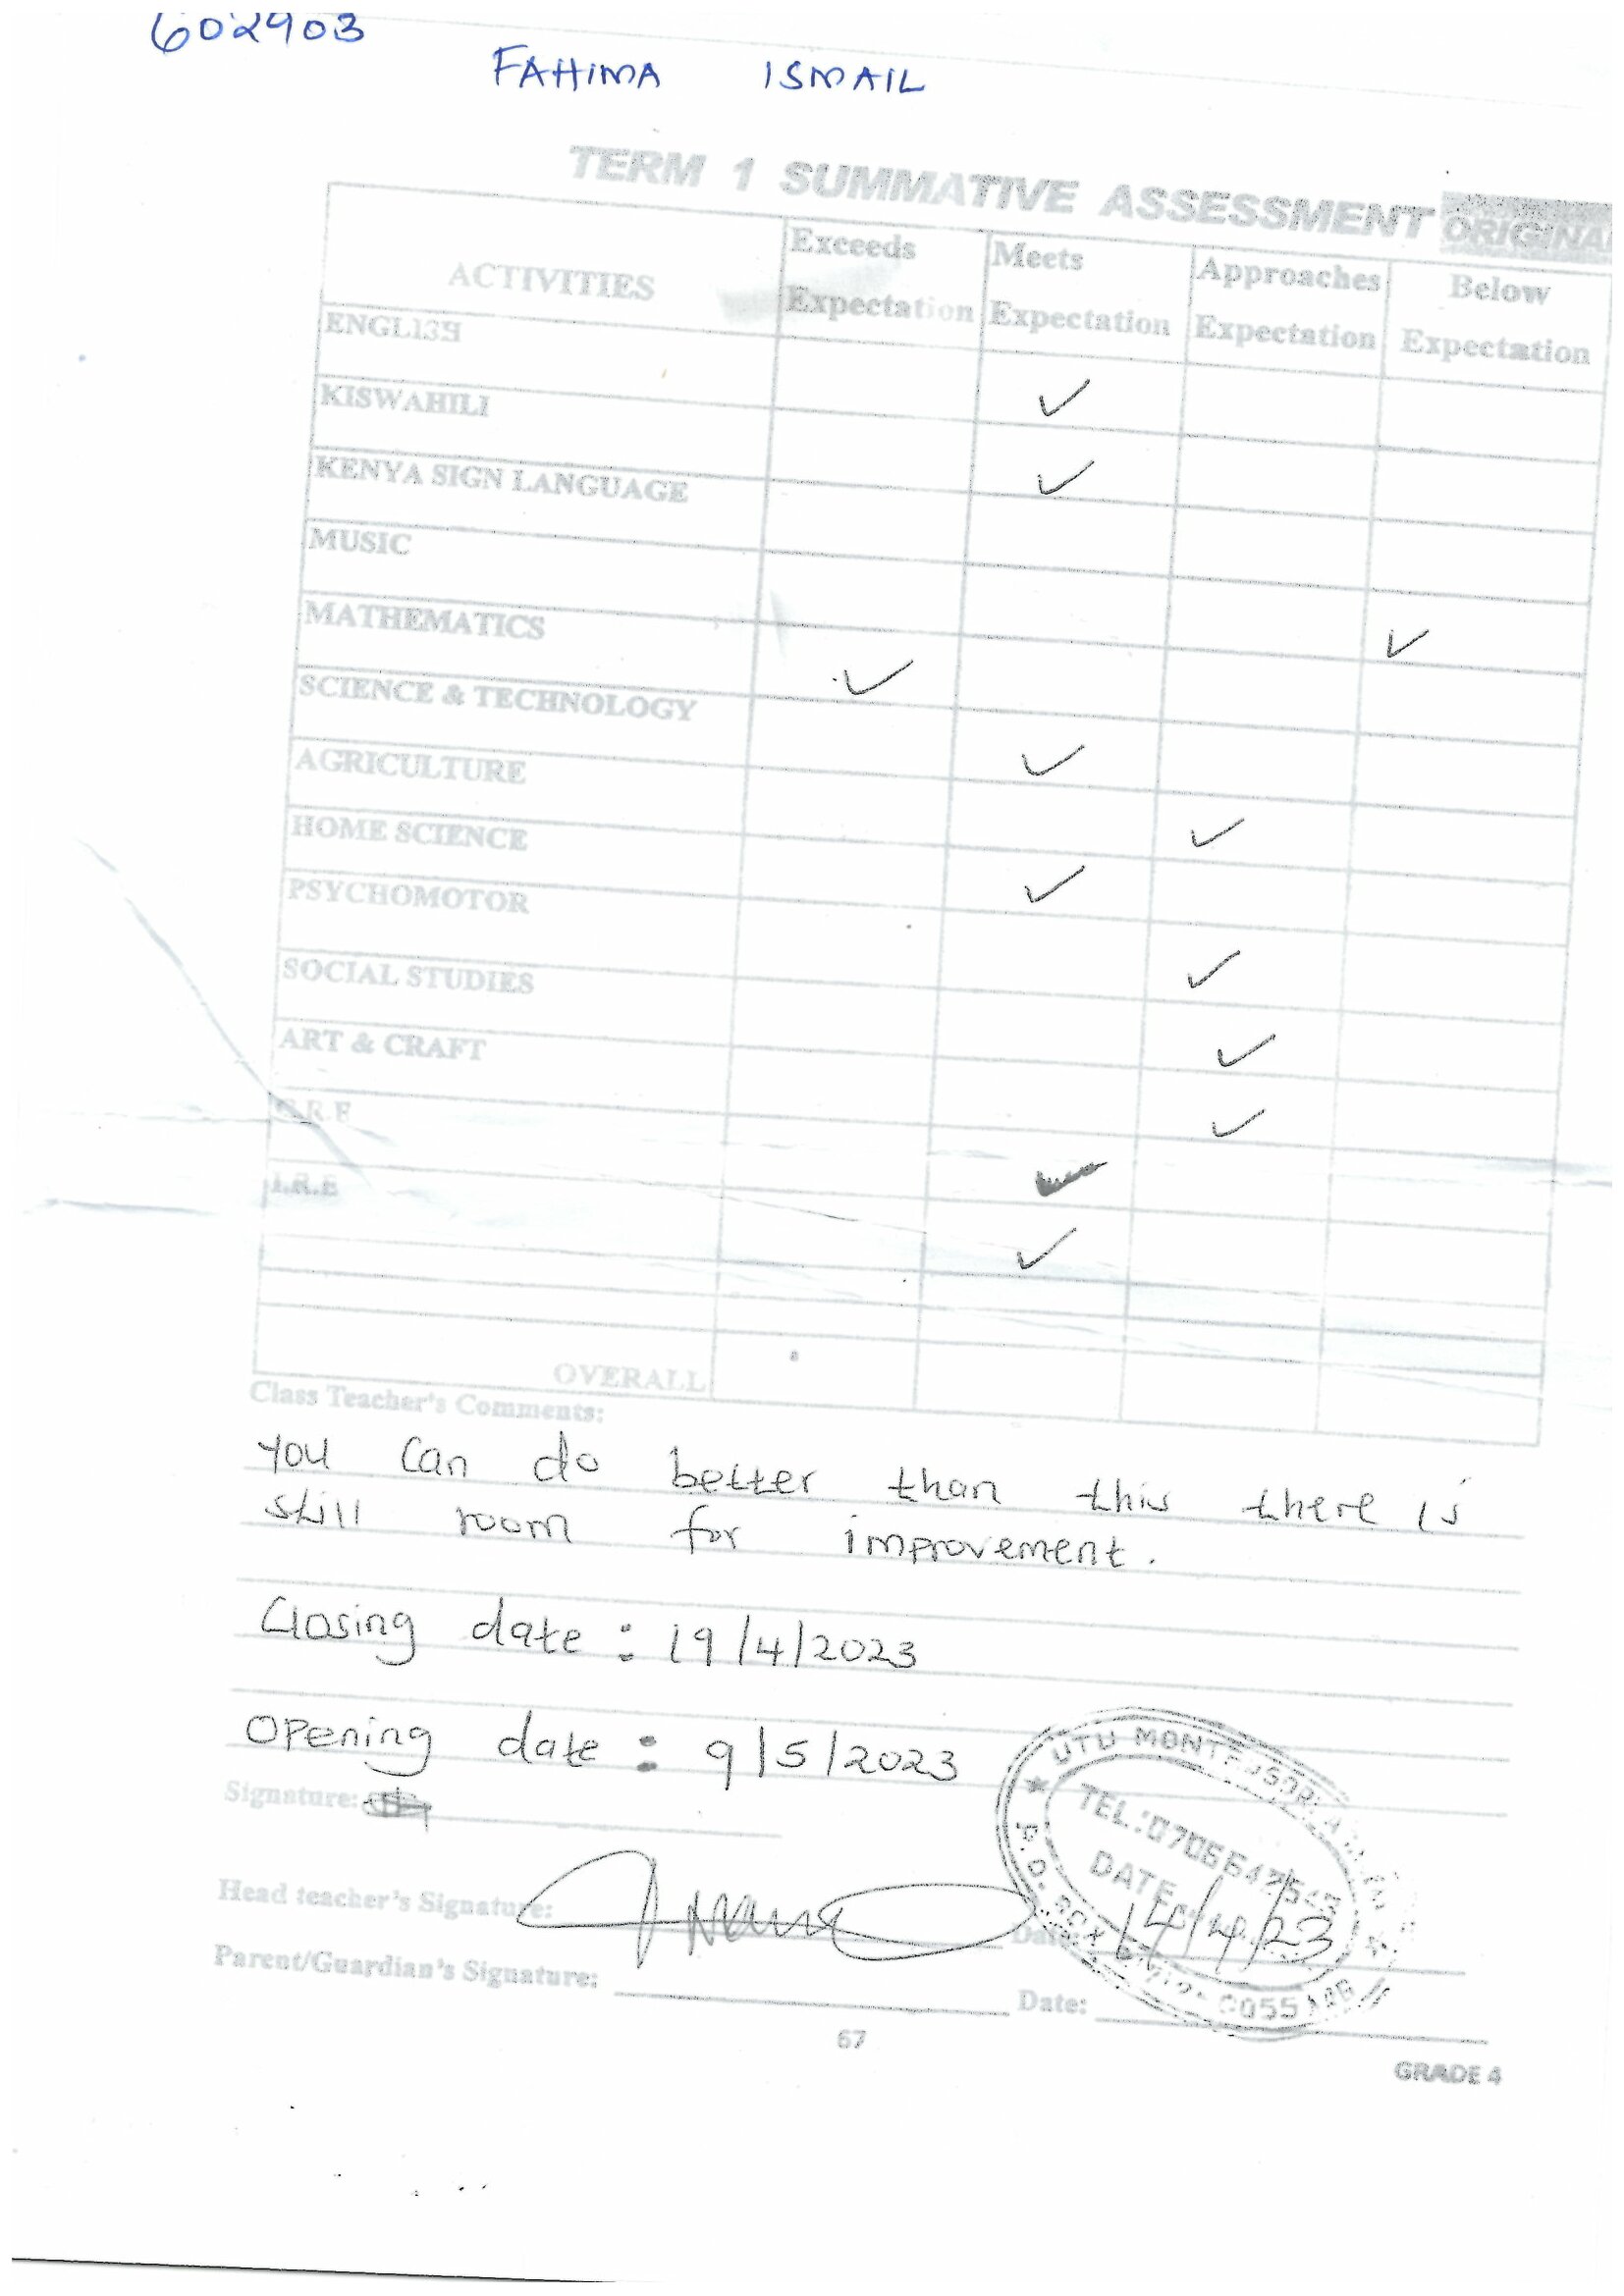 602903
FAHIMA ISMAIL
TERM 1 SUMMATIVE ASSESSMENT ORIGINAL
ACTIVITIES Exceeds Expectation Meets Expectation Approaches Expectation Below Expectation
ENGLISH
KISWAHILI ✓
KENYA SIGN LANGUAGE ✓
MUSIC
MATHEMATICS ✓
SCIENCE & TECHNOLOGY ✓
AGRICULTURE ✓
HOME SCIENCE ✓
PSYCHOMOTOR ✓
SOCIAL STUDIES ✓
ART & CRAFT ✓
C.R.E ✓
I.R.E
✓
OVERALL
Class Teacher's Comments:
You can do better than this there is
still room for improvement.
Closing date : 19/4/2023
Opening date : 9/5/2023
Signature:
Head teacher's Signature: Date: 14/4/23
Parent/Guardian's Signature: Date:
UTU MONTESSORI
TEL:
DATE
P.O. BOX
67
GRADE 4